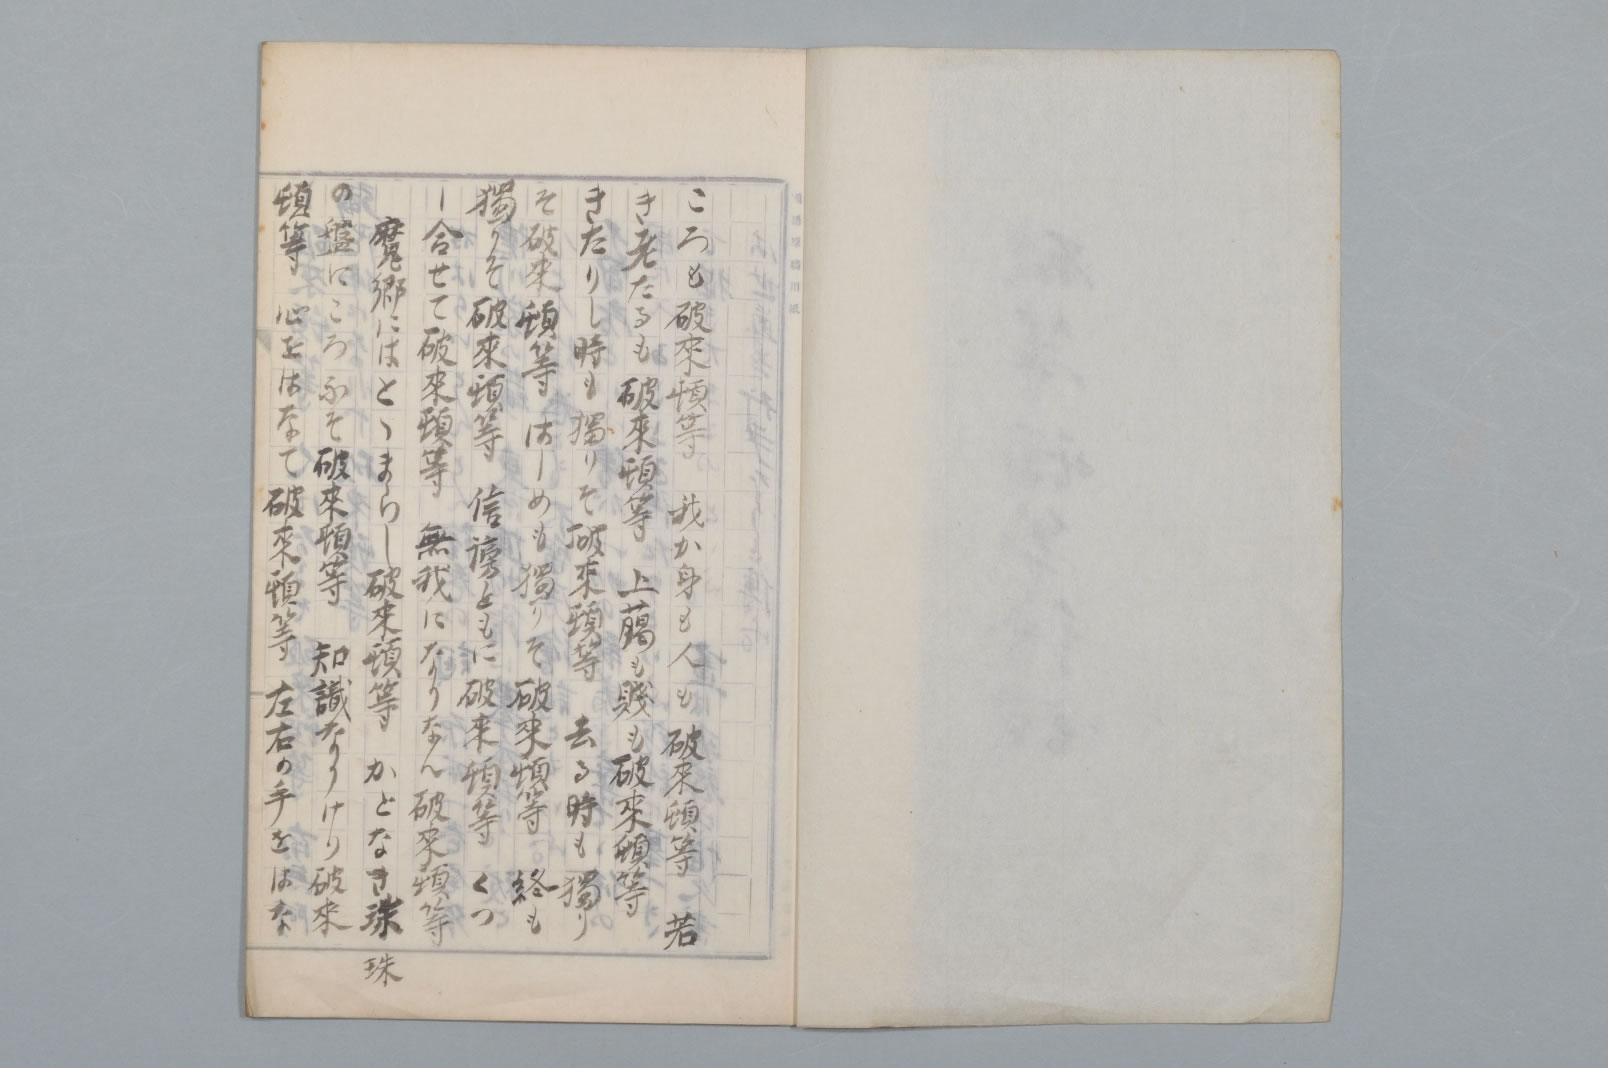 ころも破來頓等　我か身も人も　破來頓等　若
き老たるも　破來頓等　上﨟も賤も破來頓等
きたりし時も獨りそ破來頓等　去る時も獨り
そ破來頓等　はしめも獨りそ破來頓等　終も
獨りそ破來頓等　信謗ともに破來頓等　くつ
し合せて破來頓等　無我になりなん破來頓等
魔郷にはとゝまらし破來頓等　かとなき珠
珠
の盤にころふそ破來頓等　知識なりけり破來
頓等　心をはなて破來頓等　左右の手をはな